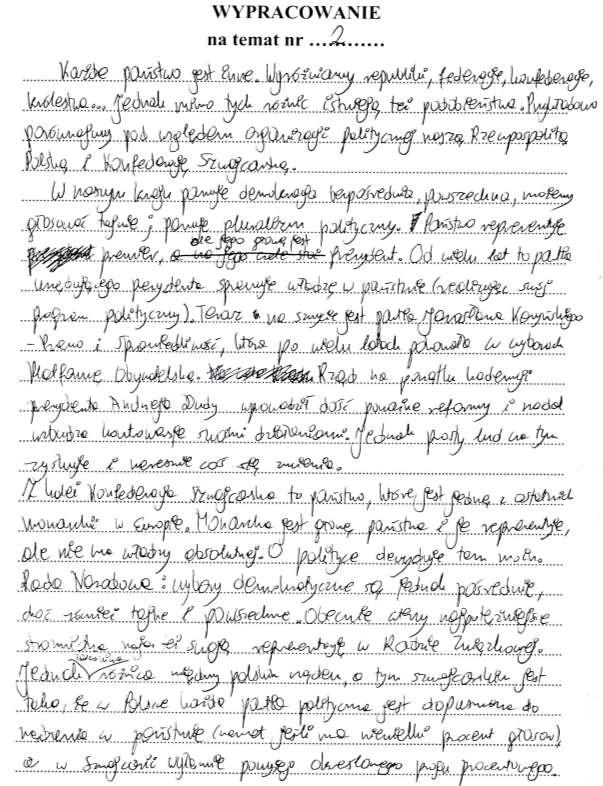 WYPRACOWANIE
na temat nr ...2......
Każde państwo jest inne. Wyróżniamy republiki, federacje, konfederacje,
królestwa... Jednak mimo tych różnic istnieją też podobieństwa. Przykładowo
porównajmy pod względem organizacji politycznej naszą Rzeczpospolitą
Polską i Konfederację Szwajcarską.
W naszym kraju panuje demokracja bezpośrednia, powszechna, możemy
głosować tajnie; panuje pluralizm polityczny. Państwo reprezentuje
premier, ale jego głową jest prezydent. Od wielu lat to partia
urzędującego prezydenta sprawuje władzę w państwie (realizując swój
program polityczny). Teraz na szczycie jest partia Jarosława Kaczyńskiego
- Prawo i Sprawiedliwość, która po wielu latach pokonała w wyborach
Platformę Obywatelską. Rząd na początku kadencji
prezydenta Andrzeja Dudy wprowadził dość poważne reformy i nadal
wzbudza kontrowersje swoimi działaniami. Jednak prosty lud na tym
zyskuje i nareszcie coś się zmienia.
Z kolei Konfederacja Szwajcarska to państwo, które jest jedną z ostatnich
monarchii w Europie. Monarcha jest głową państwa i je reprezentuje,
ale nie ma władzy absolutnej. O polityce decyduje tam m.in.
Rada Narodowa: wybory demokratyczne są jednak pośrednie,
choć również tajne i powszechne. Obecnie cztery najpotężniejsze
stronnictwa mają też swoją reprezentację w Radzie Związkowej.
Jednak różnica między polskim rządem, a tym szwajcarskim jest
taka, że w Polsce każda partia polityczna jest dopuszczona do
rządzenia w państwie (nawet jeśli ma niewielki procent głosów)
a w Szwajcarii wyłącznie powyżej określonego progu procentowego.